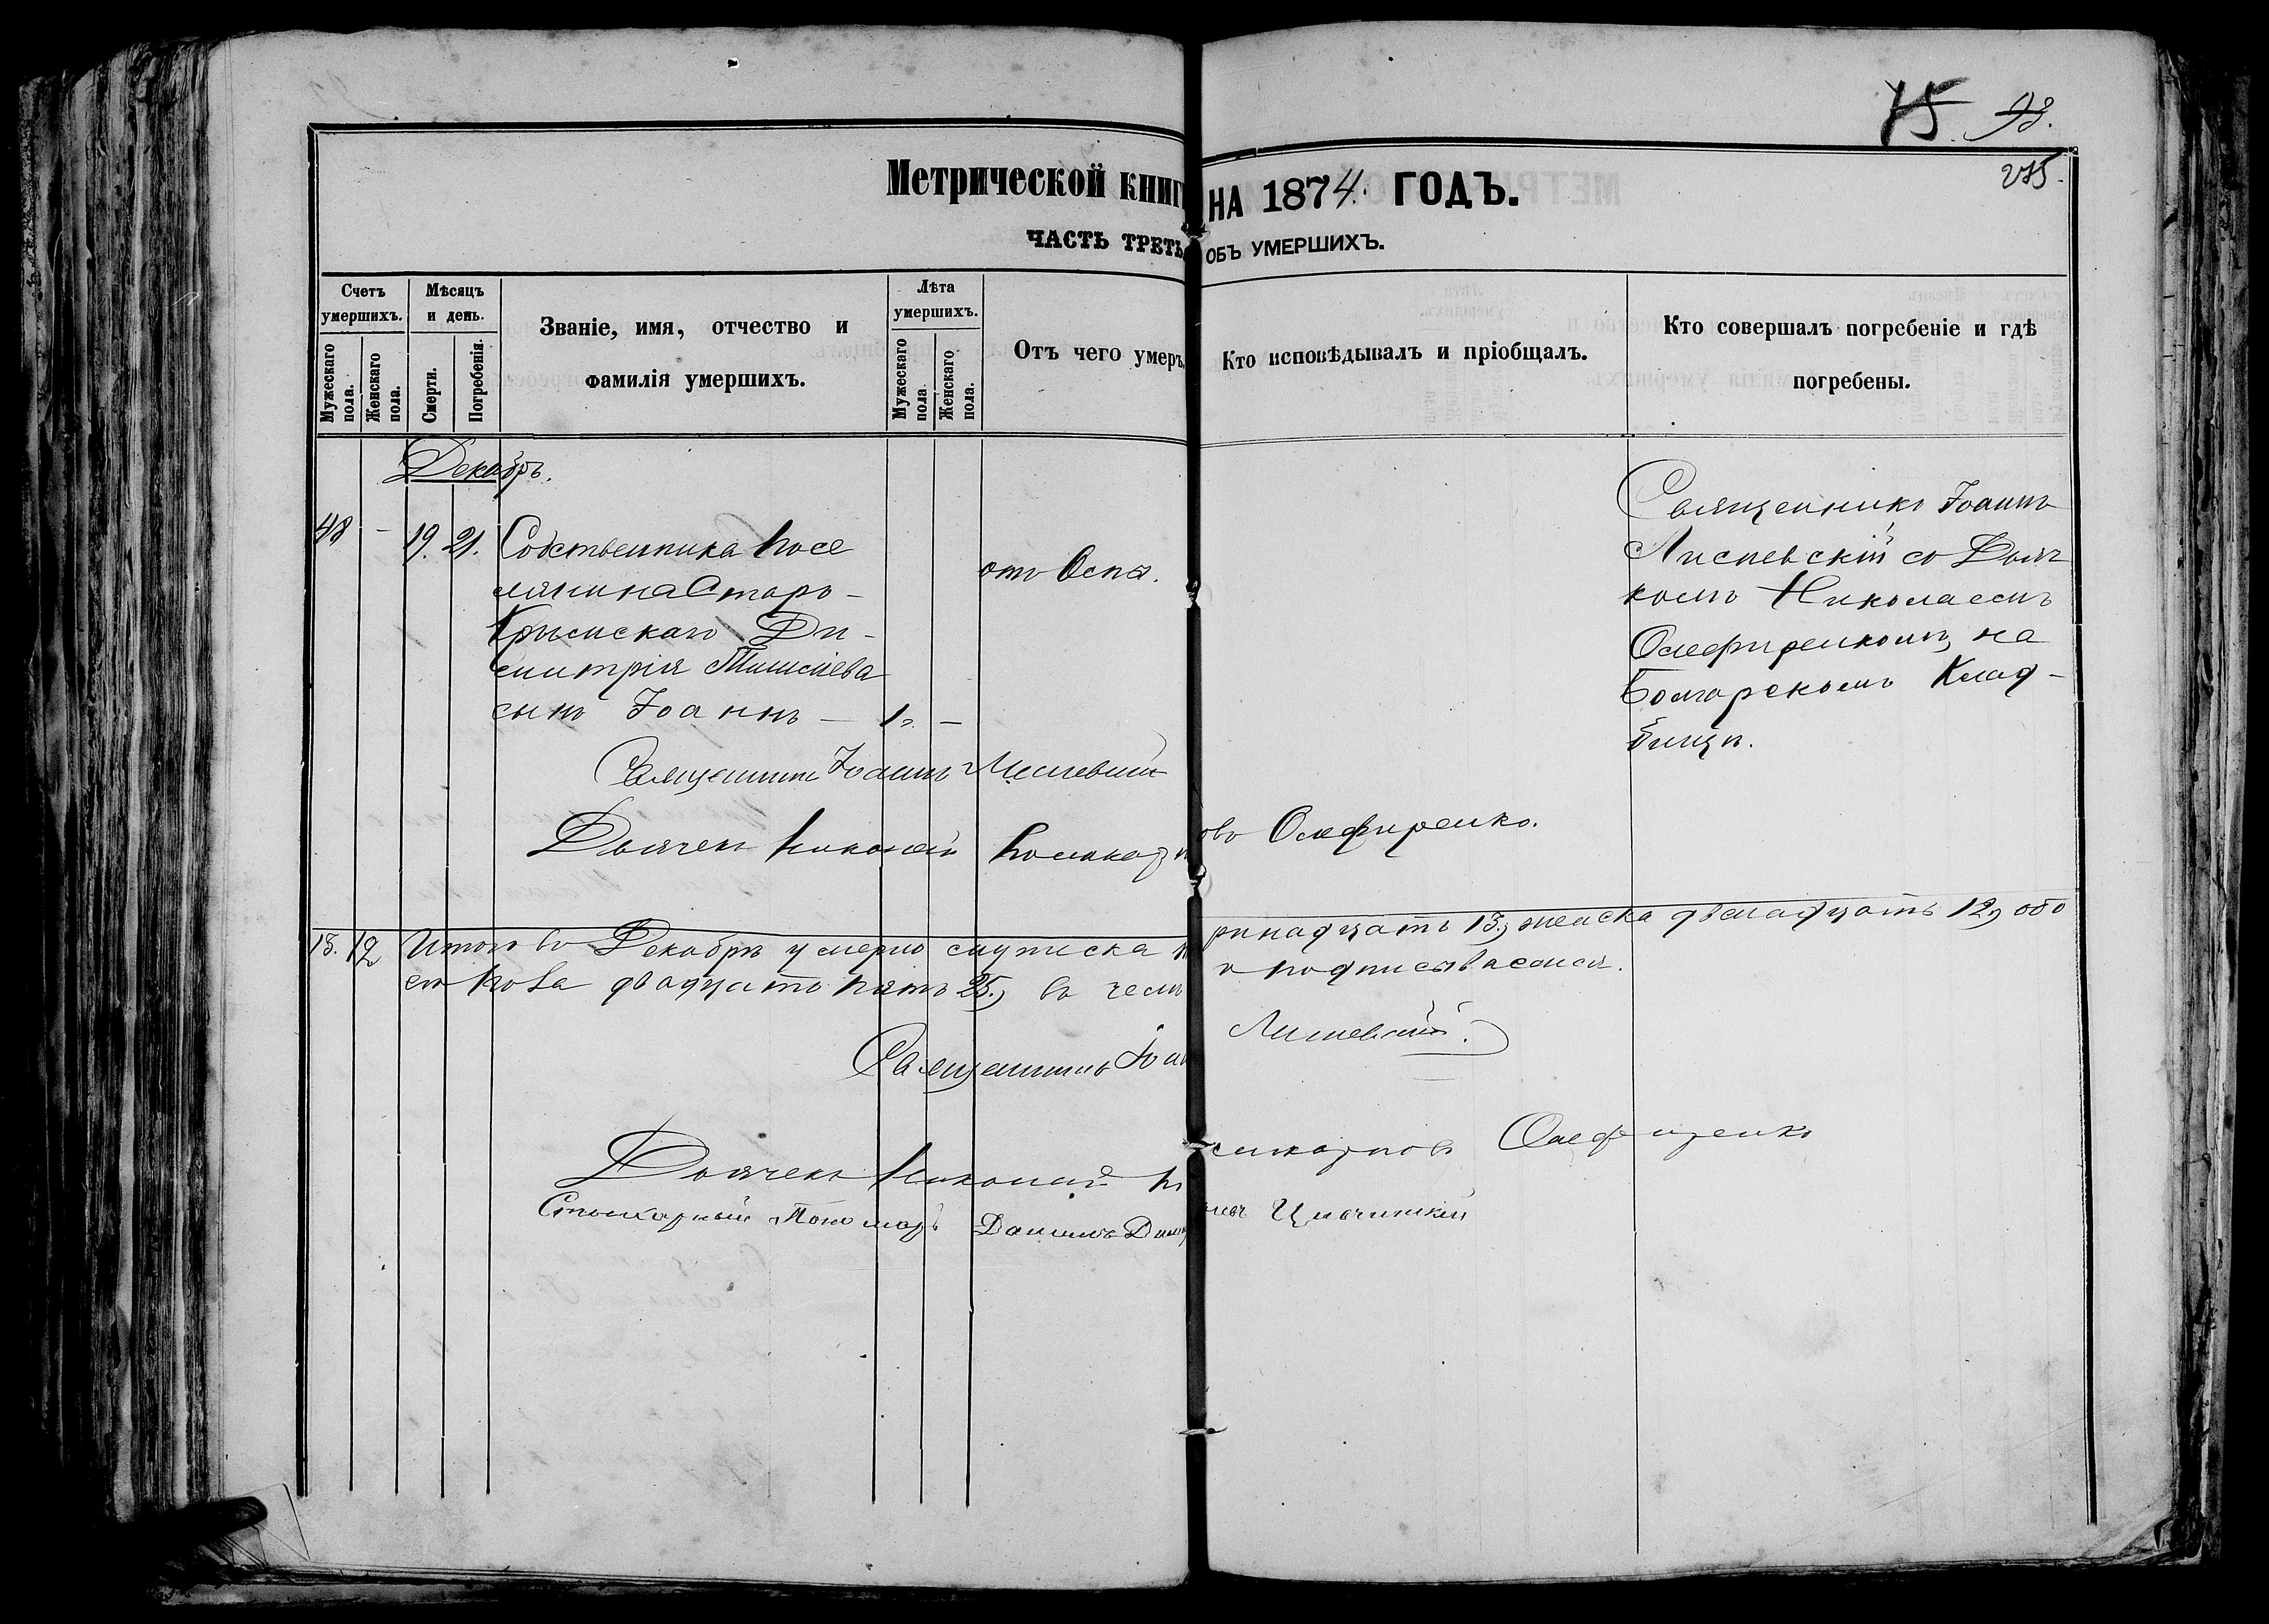 75 93.
275.
Метрической книг НА 1874. ГОДЪ.
ЧАСТЬ ТРЕТЬ ОБЪ УМЕРШИХЪ.
Счетъ умершихъ.
Мужескаго пола.
Женскаго пола.
Мѣсяцъ и день.
Смерти.
Погребенія.
Званіе, имя, отчество и
фамилія умершихъ.
Лѣта умершихъ.
Мужескаго пола
Женскаго пола.
Отъ чего умеръ.
Кто исповѣдывалъ и пріобщалъ.
Кто совершалъ погребеніе и гдѣ
погребены.
Декабрь.
48 - 19. 21. Собственника посе
лянина Старо-
Крымскаго Ди-
митрія
сынъ Іоаннъ - 1 г. -
отъ Оспы.
Священникъ Іоаннъ
со Дьяч
комъ Николаемъ
Олефиренкомъ, на
Болгарскомъ Клад-
бищѣ.
Священникъ Іоаннъ
Дьячекъ Николай Поликарповъ Олефиренко.
13. 12 Итого въ Декабрѣ умерло мужеска тринадцать 13, женска двенадцать 12, обо
его пола двадцать пять 25, въ чемъ и подписываемся.
Священникъ Іоаннъ
Дьячекъ Николай Поликарповъ Олефиренко
Пономарь Даниилъ